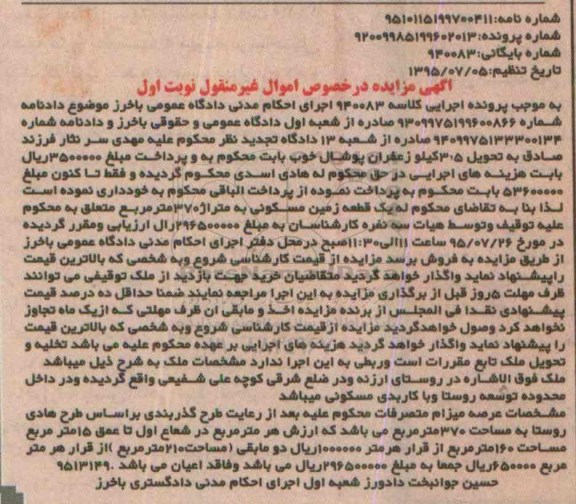 شماره نامه:۹۵۱۰۱۱۵۱۹۹۷۰۰۴۱۱
شماره پرونده:۹۲۰۰۹۹۸۵۱۹۹۶۰۲۰۱۳
شماره بایگانی:۹۴۰۰۸۳
تاریخ تنظیم:۱۳۹۵/۰۷/۰۵
آگهی مزایده درخصوص اموال غیرمنقول نوبت اول
به موجب پرونده اجرایی کلاسه ۹۴۰۰۸۳ اجرای احکام مدنی دادگاه عمومی باخرز موضوع دادنامه
شماره ۹۳۰۹۹۷۵۱۹۹۶۰۰۸۶۶ صادره از شعبه اول دادگاه عمومی و حقوقی باخرز و دادنامه شماره
۹۴۰۹۹۷۵۱۳۳۳۰۰۱۳۴ صادره از شعبه ۱۳ دادگاه تجدید نظر محکوم علیه مهدی سر نثار فرزند
صادق به تحویل ۳۰۵کیلو زعفران پوشال خوب بابت محکوم به و پرداخت مبلغ ۳۵۰۰۰۰۰ریال
بابت هزینه های اجرایی در حق محکوم له هادی اسدی محکوم گردیده و فقط تا کنون مبلغ
۵۳۶۰۰۰۰۰ بابت محکوم به پرداخت نموده از پرداخت الباقی محکوم به خودداری نموده است
لذا بنا به تقاضای محکوم له یک قطعه زمین مسکونی به متراژ۳۷۰مترمربع متعلق به محکوم
علیه توقیف وتوسط هیات سه نفره کارشناسان به مبلغ ۲۹۶۵۰۰۰۰۰ریال ارزیابی ومقرر گردیده
در مورخ ۹۵/۰۷/۲۶ ساعت ۱۱الی۱۱:۳۰صبح درمحل دفتر اجرای احکام مدنی دادگاه عمومی باخرز
از طریق مزایده به فروش برسد مزایده از قیمت کارشناسی شروع وبه شخصی که بالاترین قیمت
راپیشنهاد نماید واگذار خواهد گردید متقاضیان خرید جهت بازدید از ملک توقیفی می توانند
ظرف مهلت ۵روز قبل از برگذاری مزایده به این اجرا مراجعه نمایند ضمنا حداقل ده درصد قیمت
پیشنهادی نقدا فی المجلس از برنده مزایده اخذ و مابقی آن ظرف مهلتی که ازیک ماه تجاوز
نخواهد کرد وصول خواهدگردید مزایده ازقیمت کارشناسی شروع وبه شخصی که بالاترین قیمت
را پیشنهاد نماید واگذار خواهد گردید هزینه های اجرایی بر عهده محکوم علیه می باشد تخلیه و
تحویل ملک تابع مقررات است وربطی به این اجرا ندارد مشخصات ملک به شرح ذیل میباشد
ملک فوق الاشاره در روستای ارزنه ودر ضلع شرقی کوچه علی شفیعی واقع گردیده ودر داخل
محدوده توسعه روستا وبا کاربدی مسکونی میباشد
مشخصات عرصه میزام متصرفات محکوم علیه بعد از رعایت طرح گذربندی براساس طرح هادی
روستا به مساحت ۳۷۰مترمربع می باشد که ارزش هر مترمربع در شعاع اول تا عمق ۱۵متر مربع
مساحت ۱۶۰مترمربع از قرار هرمتر ۱۰۰۰۰۰۰ریال دو مابقی (مساحت۲۱۰مترمربع )از قرار هر متر
مربع ۶۵۰۰۰۰ریال جمعا به مبلغ ۲۹۶۵۰۰۰۰۰ریال می باشد وفاقد اعیان می باشد .۹۵۱۳۱۴۹
حسین جوانبخت دادورز شعبه اول اجرای احکام مدنی دادگستری باخرز